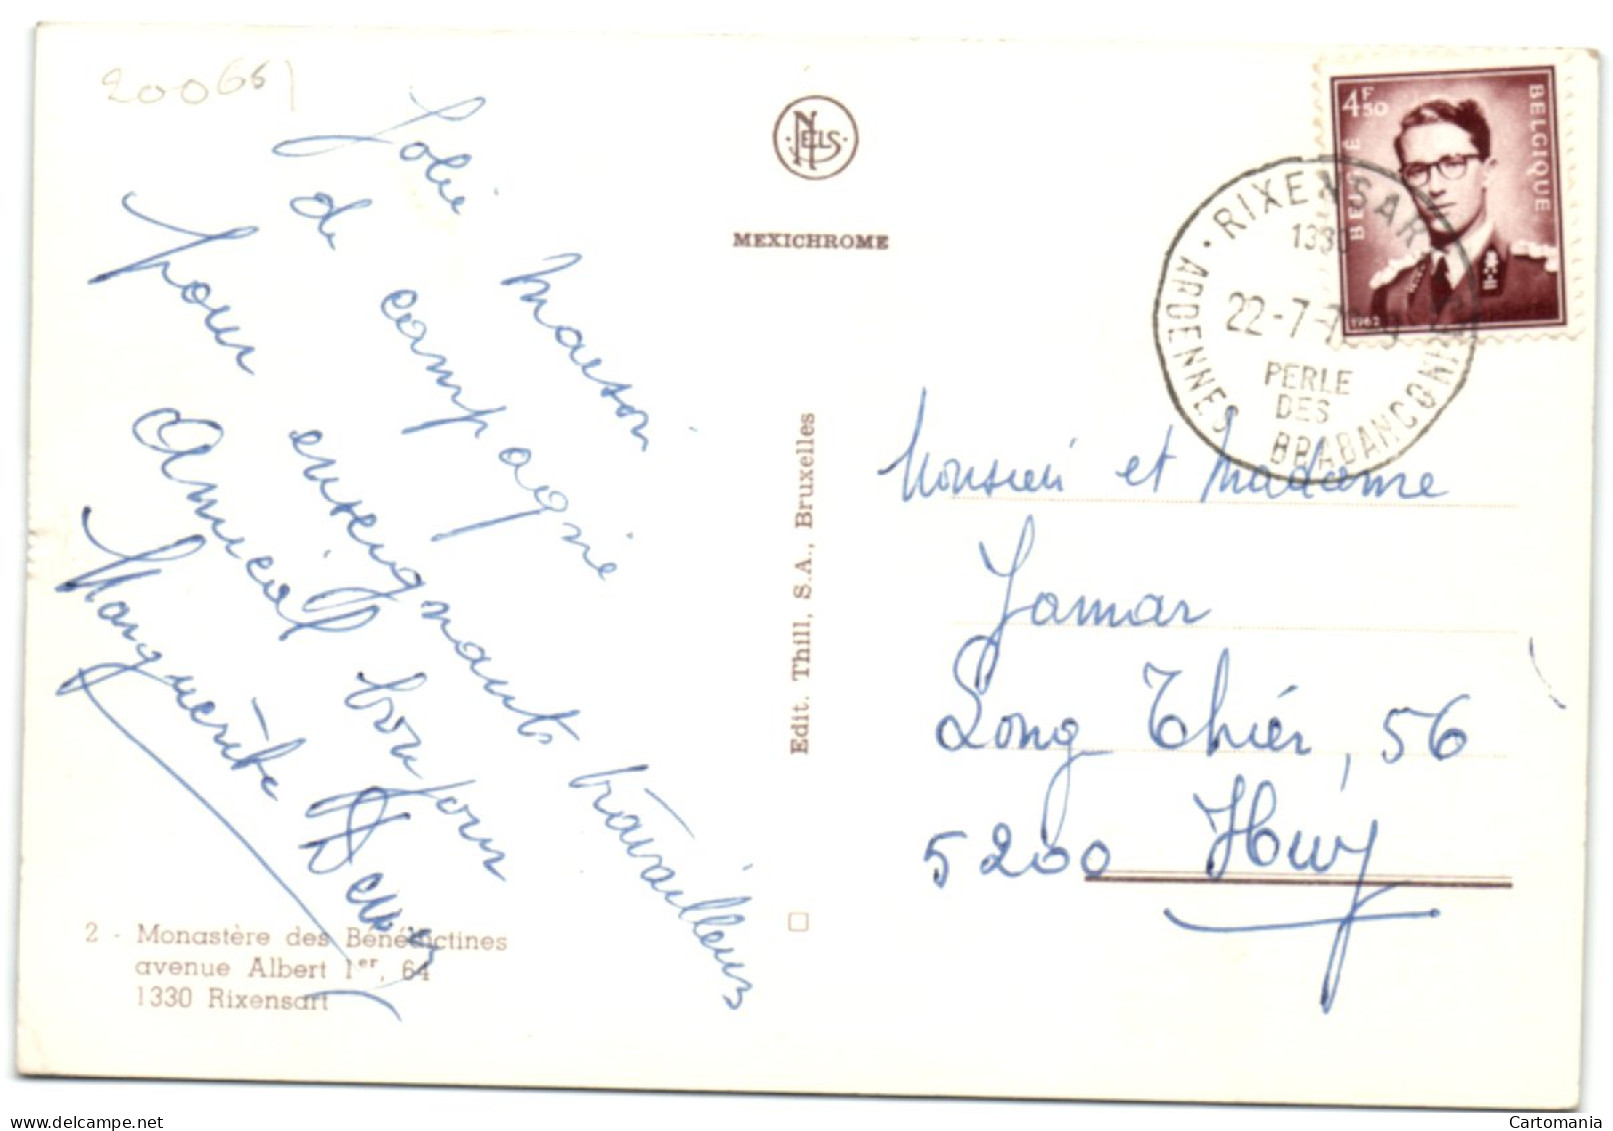 200661
Jolie maison
de campagne
pour enseignants travailleurs
Amical bonjour
Marguerite
2 - Monastère des Bénédictines
avenue Albert 1er, 64
1330 Rixensart
NELS
MEXICHROME
Edit. Thill, S.A., Bruxelles
4F50
BELGIË
BELGIQUE
1962
RIXENSART
1330
22-7-7
PERLE
DES
ARDENNES BRABANÇONNES
Monsieur et Madame
Jamar
Long Thiér, 56
5200 Huy
Cartomania